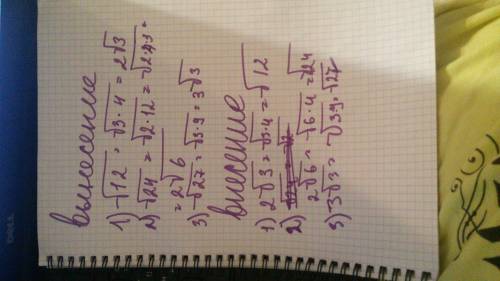 вынесение
1) √12 = √3·4 = 2√3
2) √24 = √2·12 = √2·4·3 =
= 2√6
3) √27 = √3·9 = 3√3
внесение
1) 2√3 = √3·4 = √12
2)
2√6 = √6·4 = √24
3) 3√3 = √3·9 = √27
DELL